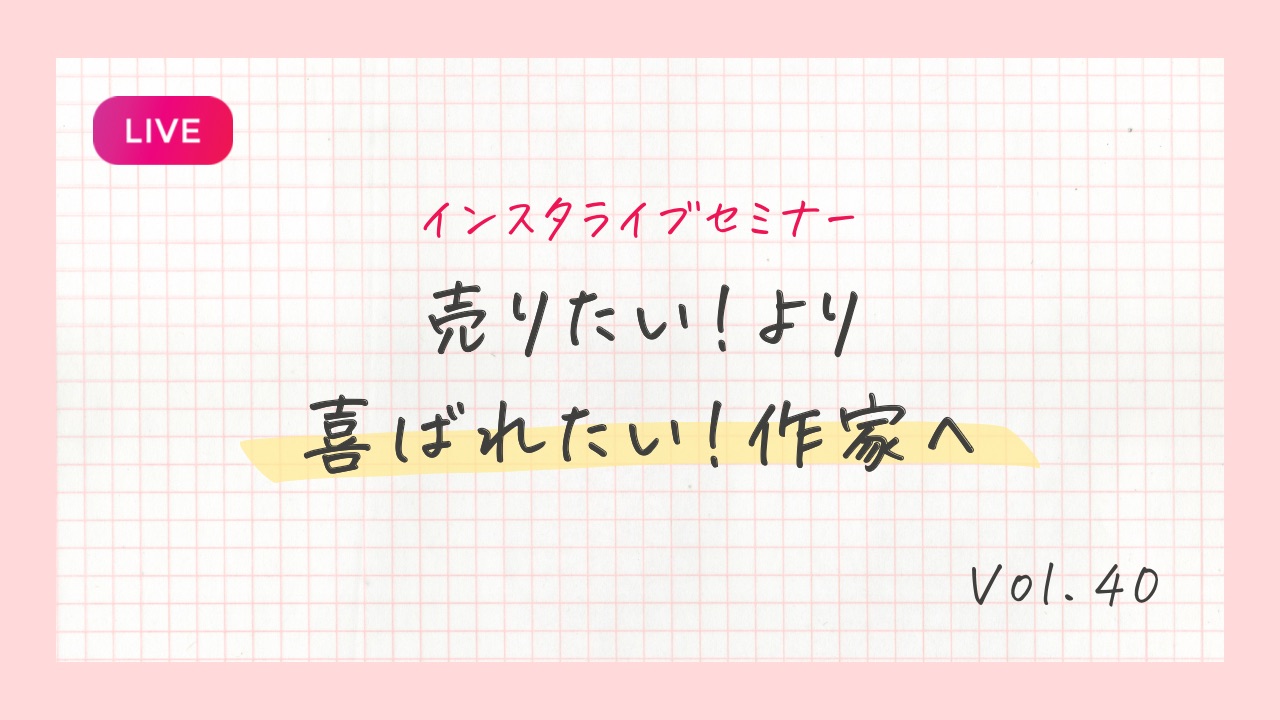 LIVE
インスタライブセミナー
売りたい！より
喜ばれたい！作家へ
Vol.40